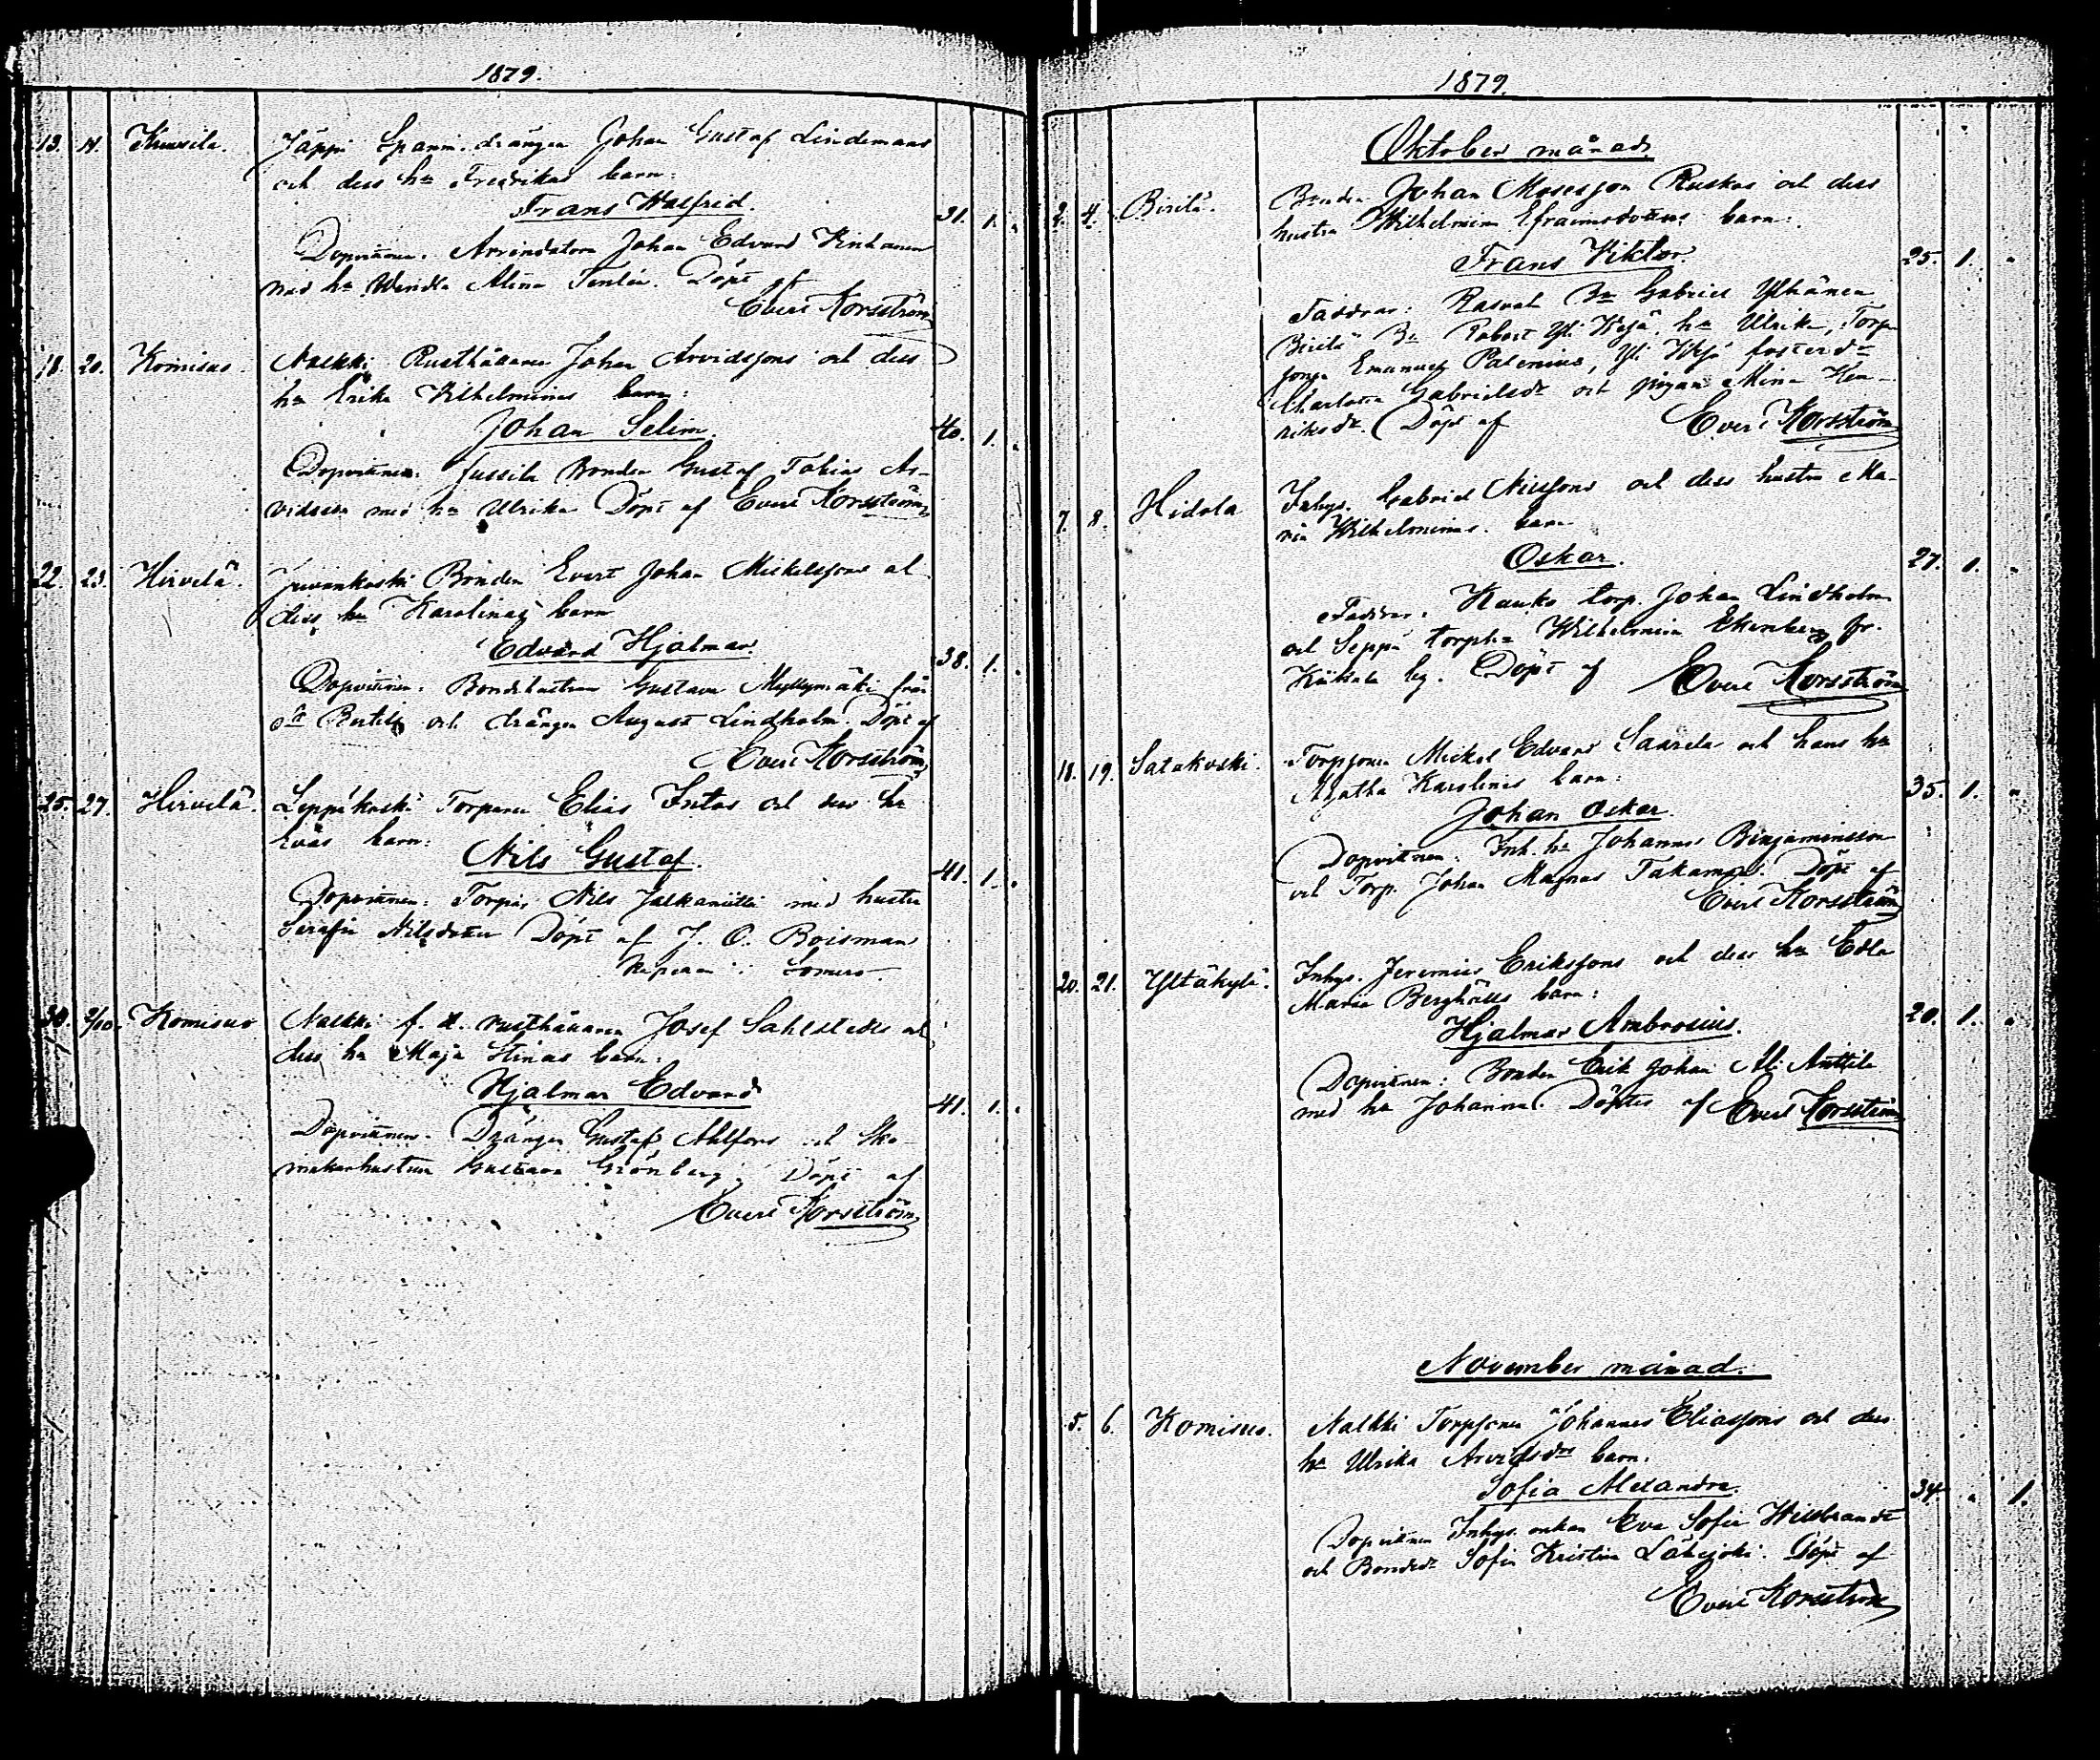 1879.
13. 14. Kuusela. Jäppi Spanm. drängen Johan Gustaf Lindemans
och dess hu Fredrikas barn:
Frans Walfrid.
31. 1.
Dopvittnen. Arrendatorn Johan Edvard
med hu Wendla Alina Tenlén. Döpt af
Evert Korsström
18. 20. Komisuo. Nalkki Rusthållaren Johan Arvidssons och dess
hu Erika Wilhelminas barn:
Johan Selim.
40. 1.
Dopvittnen. Jussila Bonden Gustaf Tobias Ar-
vidsson med hu Ulrika Döpt af Evert Korsström
22. 23. Hirvelä. Juvankoski Bonden Evert Johan Mickelssons och
dess hu Karolinas barn
Edvard Hjalmar.
38. 1.
Dopvittnen. Bondehustrun Gustava Myllymäki från
och drängen August Lindholm. Döpt af
Evert Korsström
25. 27. Hirvelä. Leppäkoski Torparen Elias Intos och dess hu
Evas barn:
Nils Gustaf.
41. 1.
Dopvittnen: Torpar. Nils Jalkaniitti med hustru
Serafia Nilsdotter Döpt af J. O. Roisman
Kaplan i Somero
30. 2/10. Komisuo Nalkki f. d. rusthållaren Josef Sahlstedts och
dess hu Maja Stinas barn:
Hjalmar Edvard
41. 1.
Dopvittnen. Drängen Gustaf Ahlfors och Sko-
makarhustrun Gustava Grönberg. Döpt af
Evert Korsström
1879.
Oktober månad.
2. 4. Viselä. Bonden Johan Mosesson Ruskas och dess
hustru Wilhelmina Efraimsdotters barn:
Frans Viktor.
25. 1.
Faddrar: Rasvala Bn Gabriel Ylhänen
Bn Robert Yli hu Ulrika, Torp-
sonen Emanuel Palenius, Yli fosterdr
Charlotta Gabrielsdr och pigan Mina Hen-
riksdr. Döpt af Evert Korsström
7. 8. Hidola Inhys. Gabriel Nilssons och dess hustru Ma-
ria Wilhelminas barn
Oskar.
27. 1.
Faddrar. Hauko torp. Johan Lindholm
och Seppä torphu Wilhelmina Ekenberg fr.
Kiikala . Döpt af Evert Korsström
18. 19. Satakoski. Torpsonen Mickel Edvard Saarelas och hans hu
Agatha Karolinas barn:
Johan Oskar.
35. 1.
Dopvittnen: Inh. hu Johanna Benjaminsson
och Torp. Johan Magnus Takamaa. Döpt af
Evert Korsström
20. 21. Yltäkylä. Inhys. Jeremias Erikssons och dess hu Edla
Maria Berghälls barn:
Hjalmar Ambrosius.
20. 1.
Dopvittnen: Bonden Erik Johan Ali Anttila
med hu Johanna. Döptes af Evert Korsström
November månad.
5. 6. Komisuo. Nalkki Torpsonen Johannes Eliassons och dess
hu Ulrika Arvidsdrs barn.
Sofia Alexandra.
34. 1.
Dopvittnen Inhys. enkan Eva Sofia Hillbrandt
och Bondedr Sofia Kristina Lähejoki. Döpt af
Evert Korsström